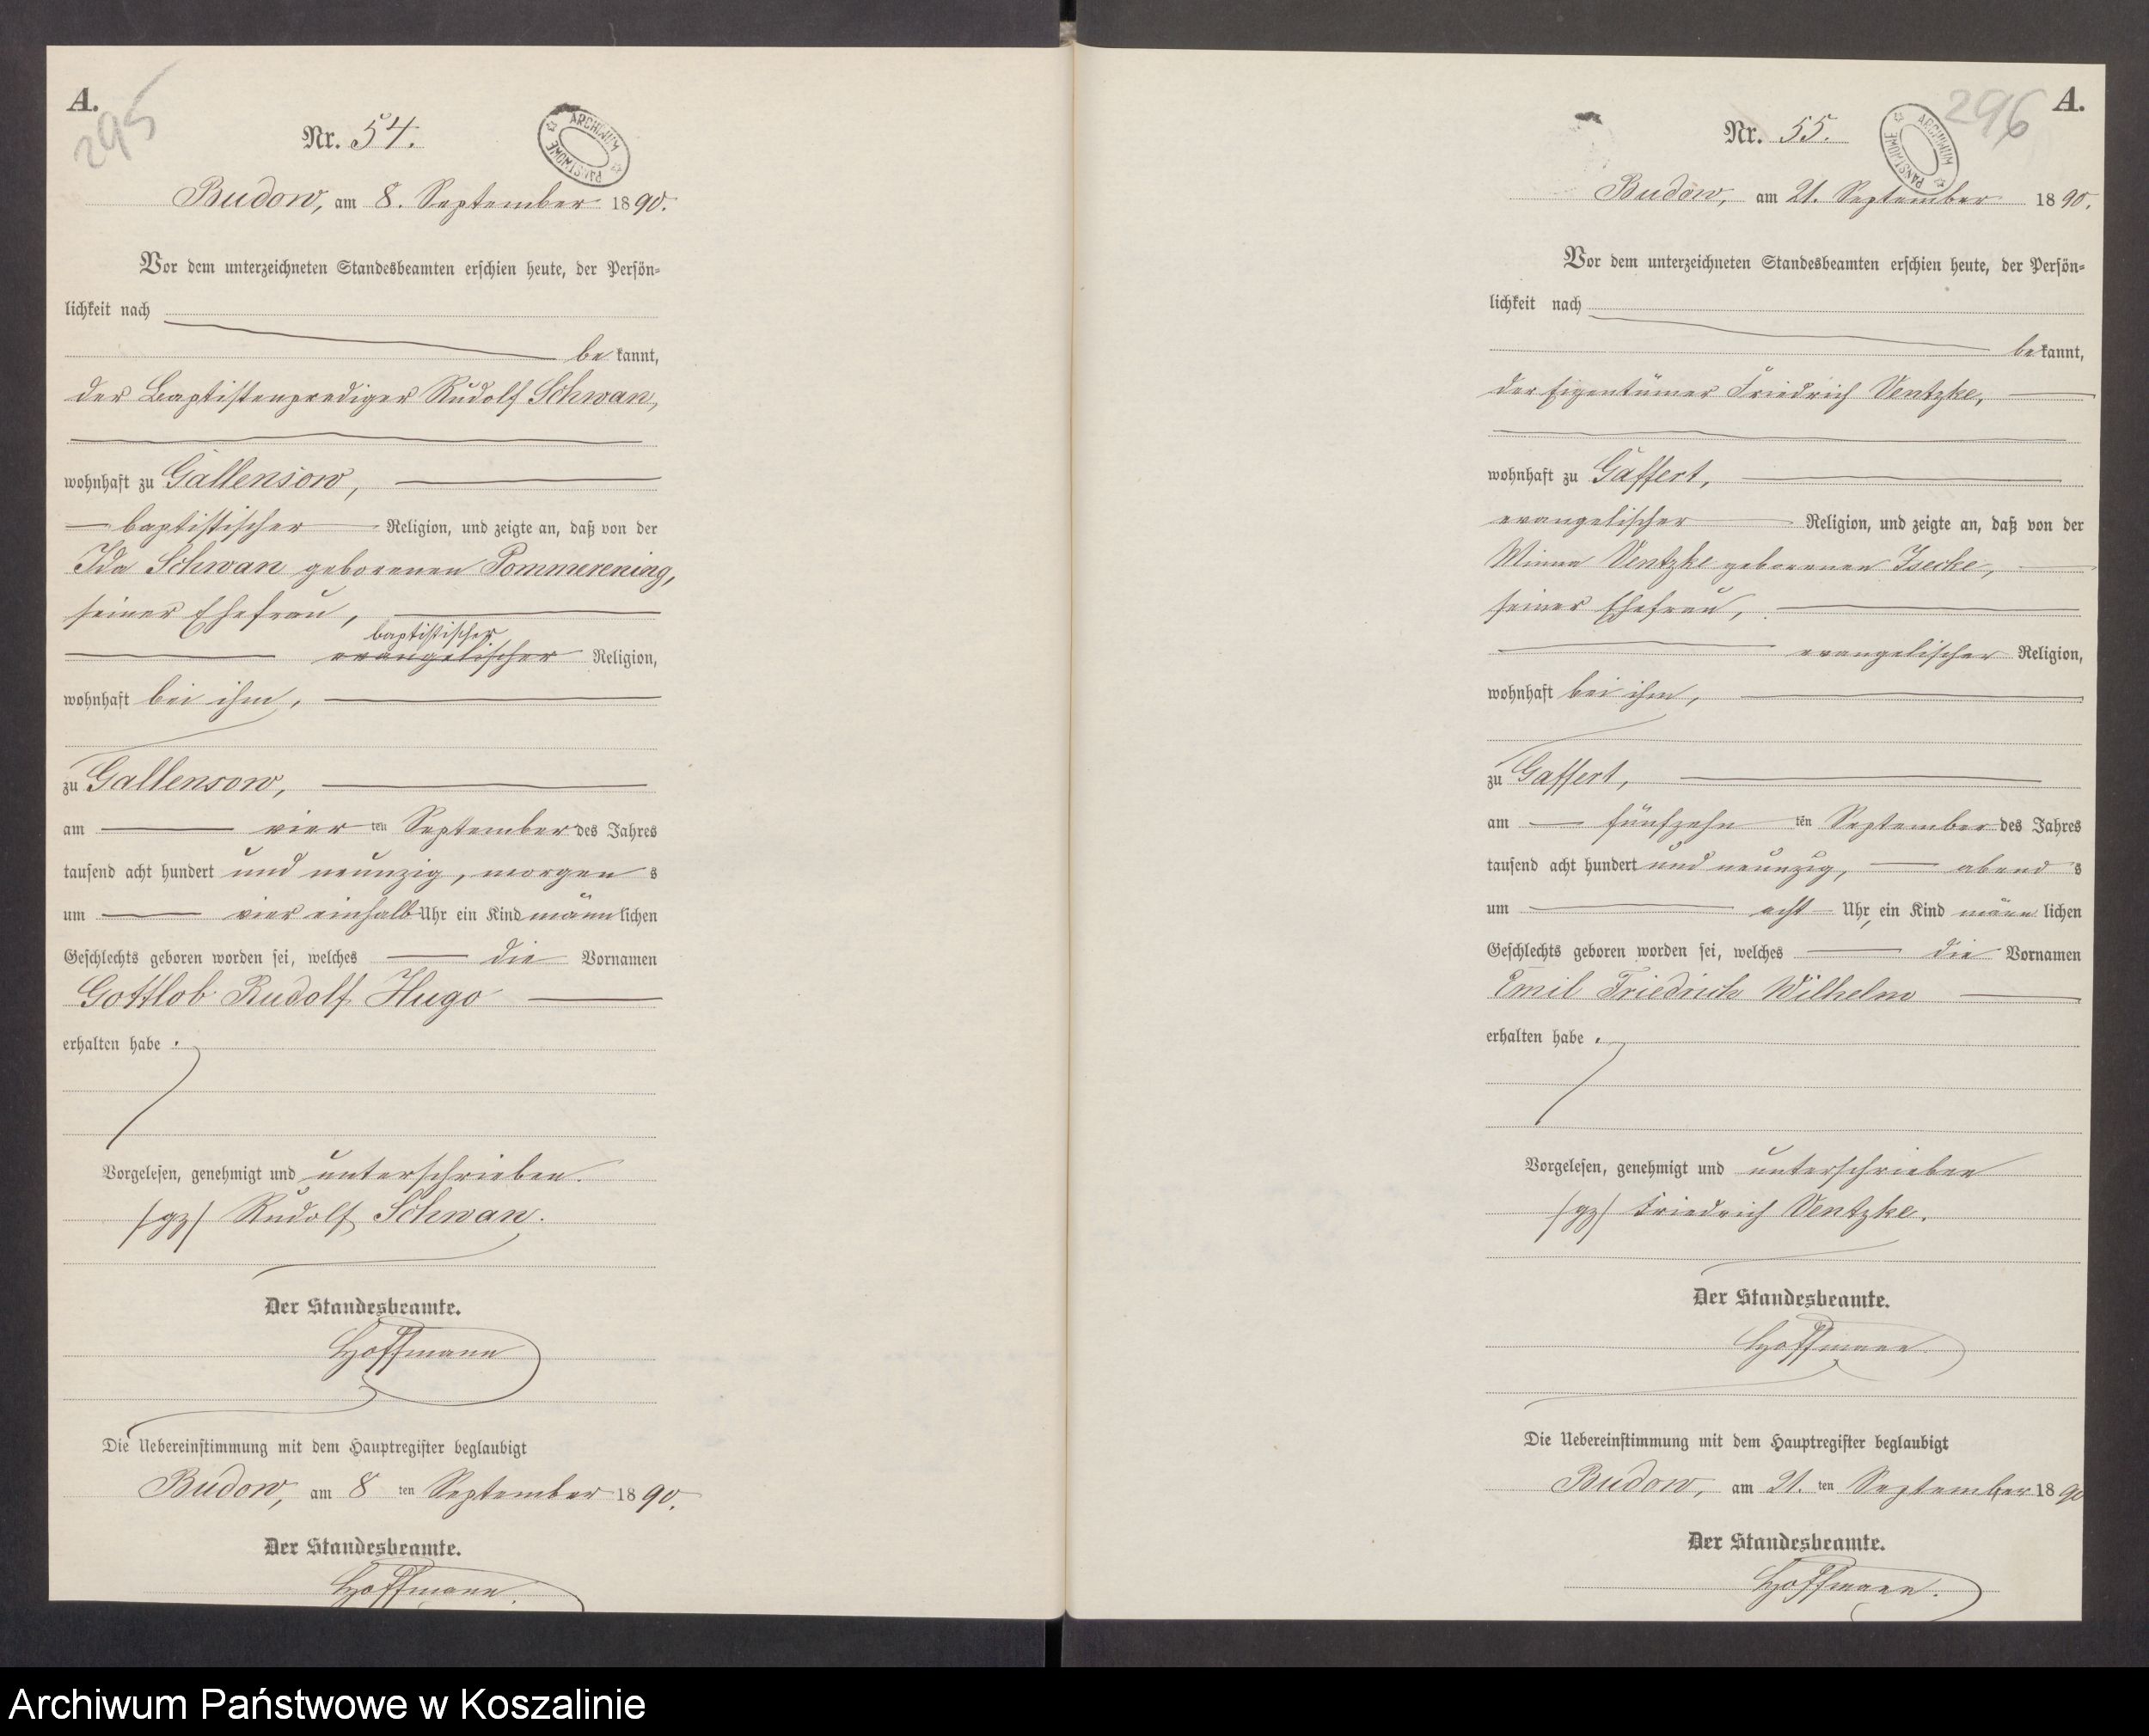 A.
295
Nr. 54.
ARCHIWUM PAŃSTWOWE
Budow, am 8. September 1890.
Vor dem unterzeichneten Standesbeamten erschien heute, der Persön-
lichkeit nach
be kannt,
der Baptistenprediger Rudolf Schwan,
wohnhaft zu Gallensow,
baptistischer Religion, und zeigte an, daß von der
Ida Schwan geborenen Pommerening,
seiner Ehefrau,
baptistischer
evangelischer Religion,
wohnhaft bei ihm,
zu Gallensow,
am vier ten September des Jahres
tausend acht hundert und neunzig, morgen s
um vier einhalb Uhr ein Kind männlichen
Geschlechts geboren worden sei, welches die Vornamen
Gottlob Rudolf Hugo
erhalten habe.
Vorgelesen, genehmigt und unterschrieben.
/gz/ Rudolf Schwan.
Der Standesbeamte.
Hoffmann
Die Uebereinstimmung mit dem Hauptregister beglaubigt
Budow, am 8 ten September 1890.
Der Standesbeamte.
Hoffmann.
296
A.
Nr. 55.
ARCHIWUM PAŃSTWOWE
Budow, am 21. September 1890.
Vor dem unterzeichneten Standesbeamten erschien heute, der Persön-
lichkeit nach
be kannt,
der Eigentümer Friedrich Ventzke,
wohnhaft zu Gaffert,
evangelischer Religion, und zeigte an, daß von der
Minna Ventzke geborenen Isecke,
seiner Ehefrau,
evangelischer Religion,
wohnhaft bei ihm,
zu Gaffert,
am fünfzehn ten September des Jahres
tausend acht hundert und neunzig, abend s
um acht Uhr, ein Kind männ lichen
Geschlechts geboren worden sei, welches die Vornamen
Emil Friedrich Wilhelm
erhalten habe.
Vorgelesen, genehmigt und unterschrieben
/gz/ Friedrich Ventzke.
Der Standesbeamte.
Hoffmann.
Die Uebereinstimmung mit dem Hauptregister beglaubigt
Budow, am 21. ten September 1890
Der Standesbeamte.
Hoffmann.
Archiwum Państwowe w Koszalinie